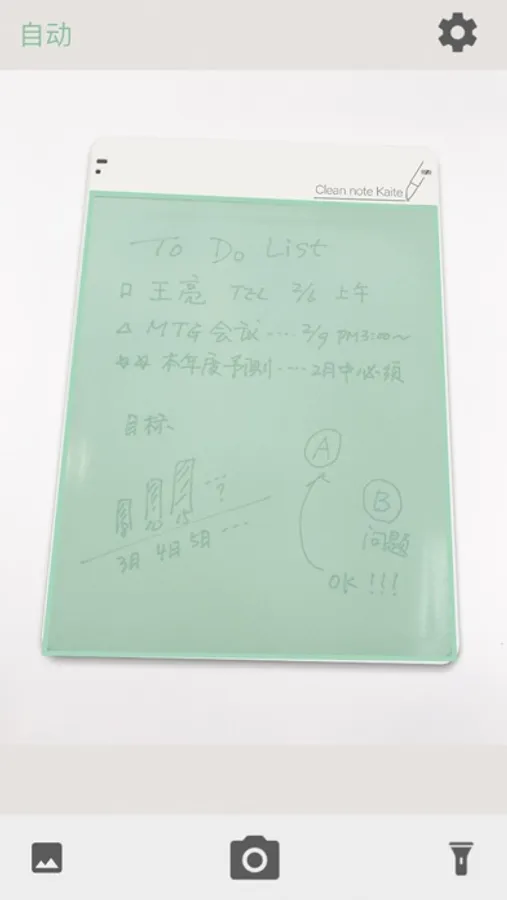 自动
Clean note Kaite
To Do List
口 王亮 TEL 2/6 上午
△ MTG 会议 .... 2/9 PM3:00~
本年度予測 .... 2月中必须
目标、
A
...?
B
10 15
问题
3月 4月 5月 ...
OK !!!